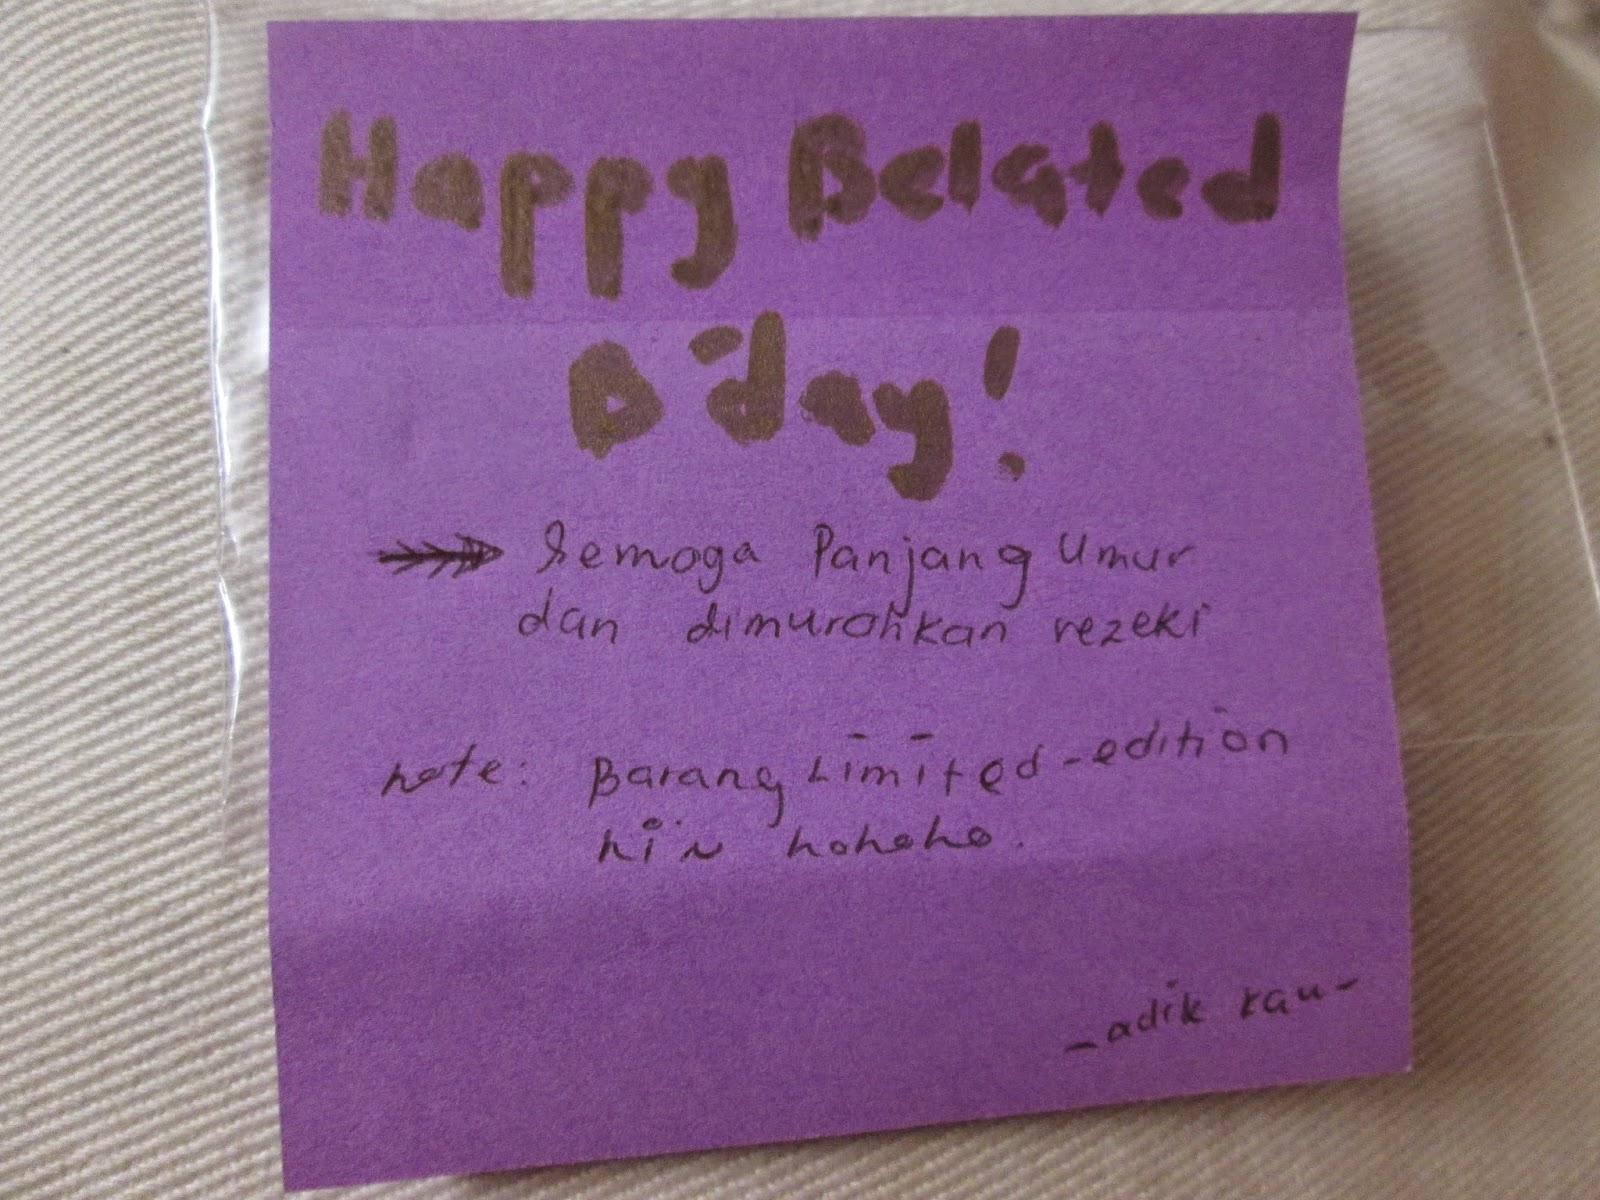 Happy Belated
B'day!
Semoga Panjang Umur
dan dimurahkan rezeki
note: Barang Limited-edition
ni~ hohoho.
- adik kau -